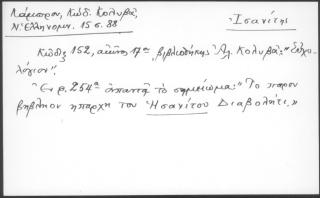 Λάμπρου, Κώδ. Κολυβᾶ,
Ν. Ἑλληνομν. 15 σ. 38
Ἰσανίτης
Κώδιξ 152, αἰῶνος 17ου "βιβλιοθήκης Ἀλ. Κολυβᾶ: "Εὐχο-
λόγιον".
"Ἐν φ. 254α ἀπαντᾷ τὸ σημείωμα: "Το παρον
βηβλιον ηπαρχη του Ἡσανίτου Διαβολήτι."